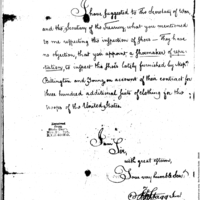 I have suggested to the Secretary of War
and the Secretary of the Treasury what you mentioned
to me respecting the inspection of shoes — They have
no objection, that you appoint a shoemaker of repu-
tation, to inspect the shoes lately furnished by Messrs
and Young on account of their contract for
three hundred additional suits of clothing for the
troops of the United States.
I am
Sir,
with great esteem,
Your very humble Serv.